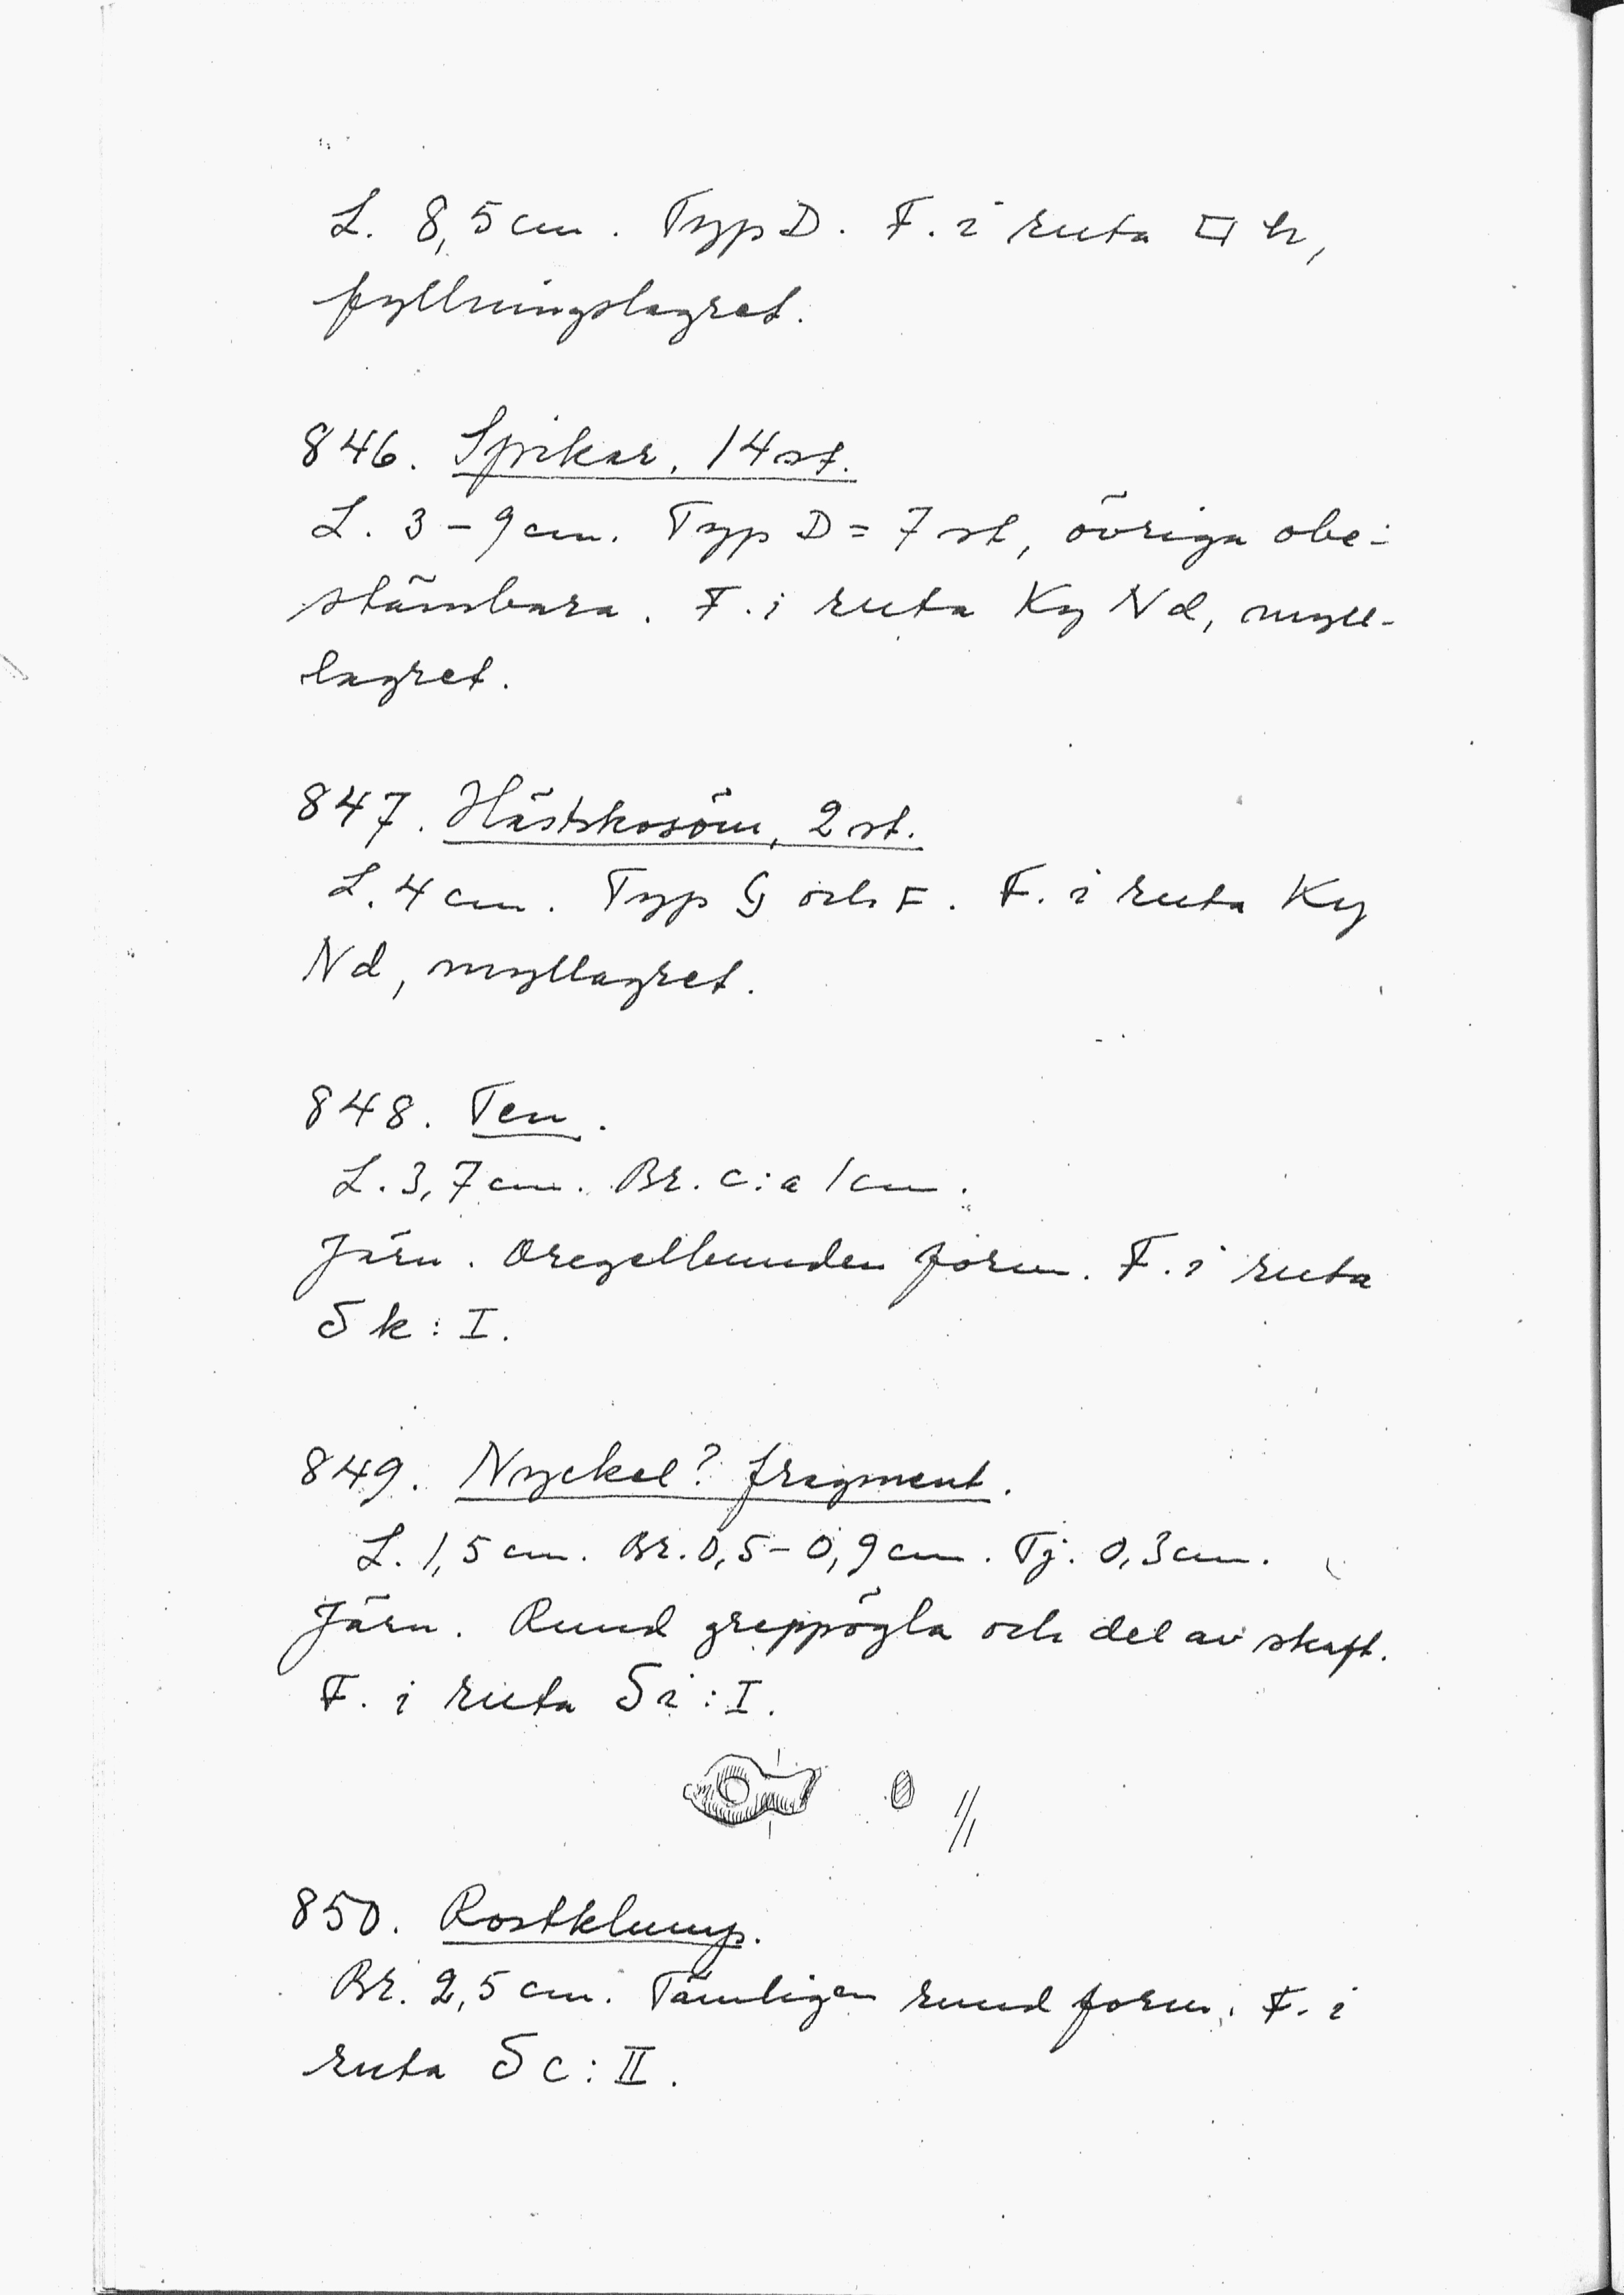 L. 8,5 cm. Typ D. F. i ruta □ h,
fyllningslagret.
846. Spikar, 14 st.
L. 3-9 cm. Typ D = 7 st, övriga obe-
stämbara. F. i ruta Ky Nd, myll-
lagret.
847. Hästskosöm, 2 st.
L. 4 cm. Typ G och F. F. i ruta Ky
Nd, myllagret.
848. Ten.
L. 3,7 cm. Br. c:a 1 cm.
Järn. Oregelbunden form. F. i ruta
Sk: I.
849. Nyckel? fragment.
L. 1,5 cm. Br. 0,5-0,9 cm. Tj. 0,3 cm.
Järn. Rund greppögla och del av skaft.
F. i ruta Si: I.
1/1
850. Rostklump.
Br. 2,5 cm. Tämligen rund form. F. i
ruta Sc: II.